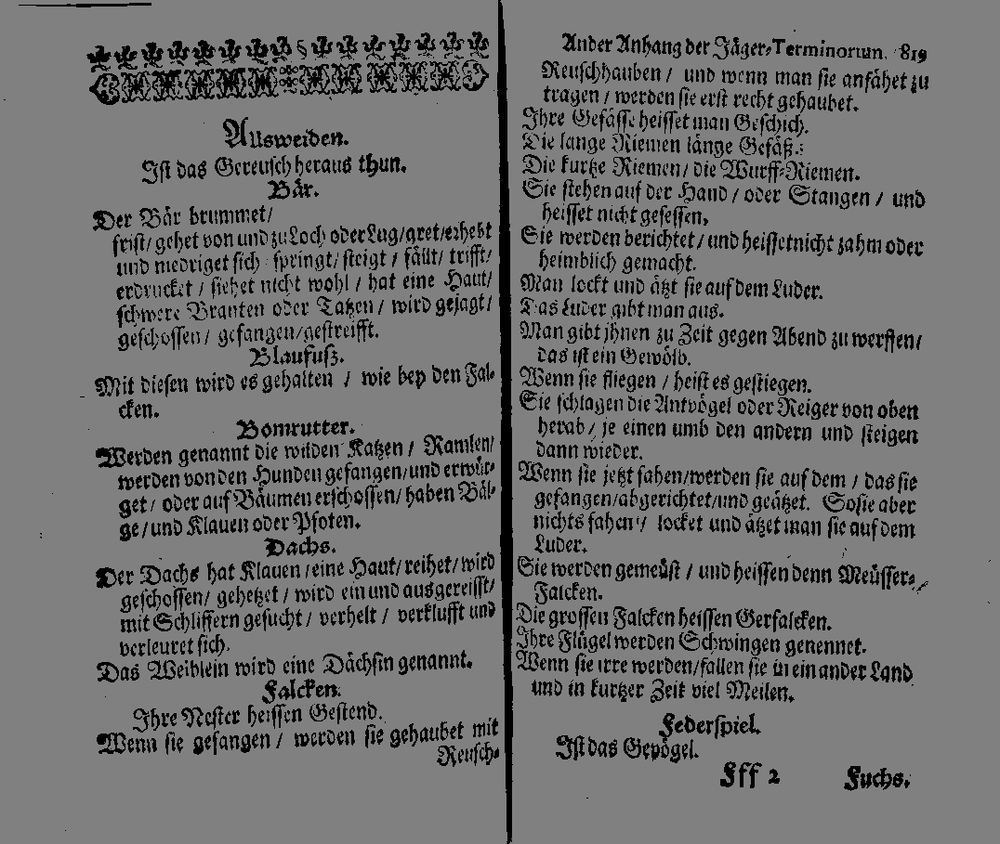 Ausweiden.
Ist das Gereusch heraus thun.
Bär.
Der Bär brummet/
frist/ gehet von und zu Loch oder Lug/ gret/ erhebt
und niedriget sich springt/ steigt/ fält/ trifft/
erdrucket/ siehet nicht wohl/ hat eine Haut/
schwere Branten oder Tatzen/ wird gejagt/
geschossen/ gefangen/ gestreifft.
Blaufusz.
Mit diesen wird es gehalten / wie bey den Fal-
cken.
Bomrutter.
Werden genannt die wilden Katzen/ Ramlen/
werden von den Hunden gefangen/ und erwür-
get/ oder auf Bäumen erschossen/ haben Bäl-
ge/ und Klauen oder Pfoten.
Dachs.
Der Dachs hat Klauen/ eine Haut/ reihet/ wird
geschossen/ gehetzet/ wird ein und ausgereisst/
mit Schliffern gesucht/ verhelt/ verklufft und
verleuret sich.
Das Weiblein wird eine Dächsin genannt.
Falcken.
Ihre Nester heissen Gestend.
Wenn sie gefangen/ werden sie gehaubet mit
Reusch-
Ander Anhang der Jäger-Terminorum. 819
Reuschhauben/ und wenn man sie anfähet zu
tragen/ werden sie erst recht gehaubet.
Ihre Gefässe heisset man Geschich.
Die lange Riemen länge Gefäß.
Die kurtze Riemen/ die Wurff-Riemen.
Sie stehen auf der Hand/ oder Stangen/ und
heisset nicht gesessen.
Sie werden berichtet/ und heisset nicht zahm oder
heimblich gemacht.
Man lockt und ätzt sie auf dem Luder.
Das Luder gibt man aus.
Man gibt jhnen zu Zeit gegen Abend zu werffen/
das ist ein Gewölb.
Wenn sie fliegen/ heist es gestiegen.
Sie schlagen die Antvögel oder Reiger von oben
herab/ je einen umb den andern und steigen
dann wieder.
Wenn sie jetzt fahen/ werden sie auf dem/ das sie
gefangen/ abgerichtet/ und geätzet. So sie aber
nichts fahen/ locket und ätzet man sie auf dem
Luder.
Sie werden gemeüst/ und heissen denn Meüsser-
Falcken.
Die grossen Falcken heissen Gerfalcken.
Ihre Flügel werden Schwingen genennet.
Wenn sie irre werden/ fallen sie in ein ander Land
und in kurtzer Zeit viel Meilen.
Federspiel.
Ist das Gevögel.
Fff 2 Fuchs.